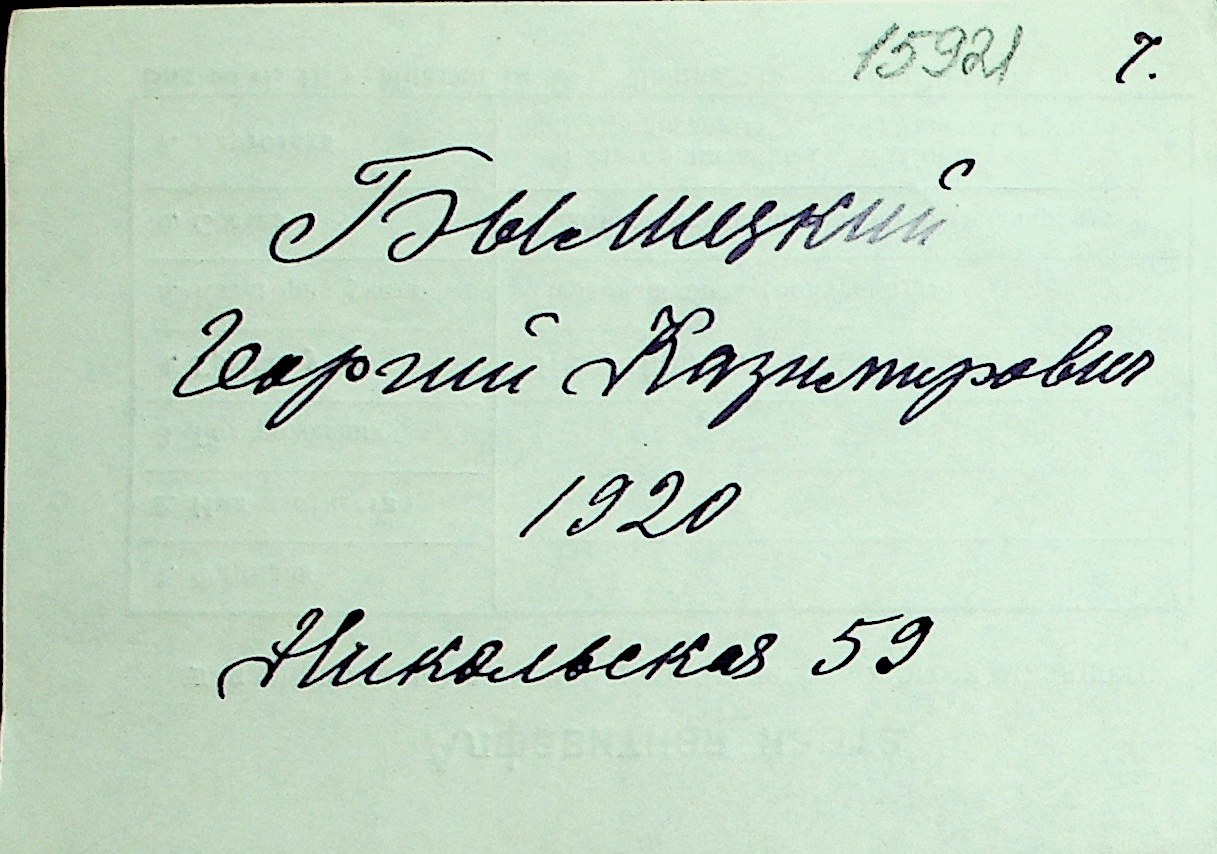 15921 7.
Былицкий
Георгий Казимирович
1920
Никольская 59